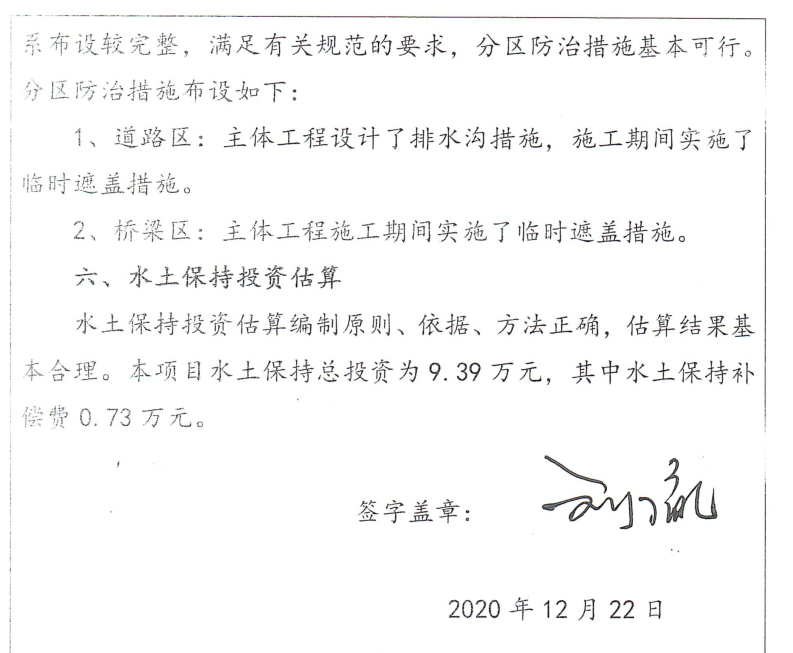 系布设较完整，满足有关规范的要求，分区防治措施基本可行。
分区防治措施布设如下：
1、道路区：主体工程设计了排水沟措施，施工期间实施了
临时遮盖措施。
2、桥梁区：主体工程施工期间实施了临时遮盖措施。
六、水土保持投资估算
水土保持投资估算编制原则、依据、方法正确，估算结果基
本合理。本项目水土保持总投资为 9.39 万元，其中水土保持补
偿费 0.73 万元。
签字盖章：
2020 年 12 月 22 日